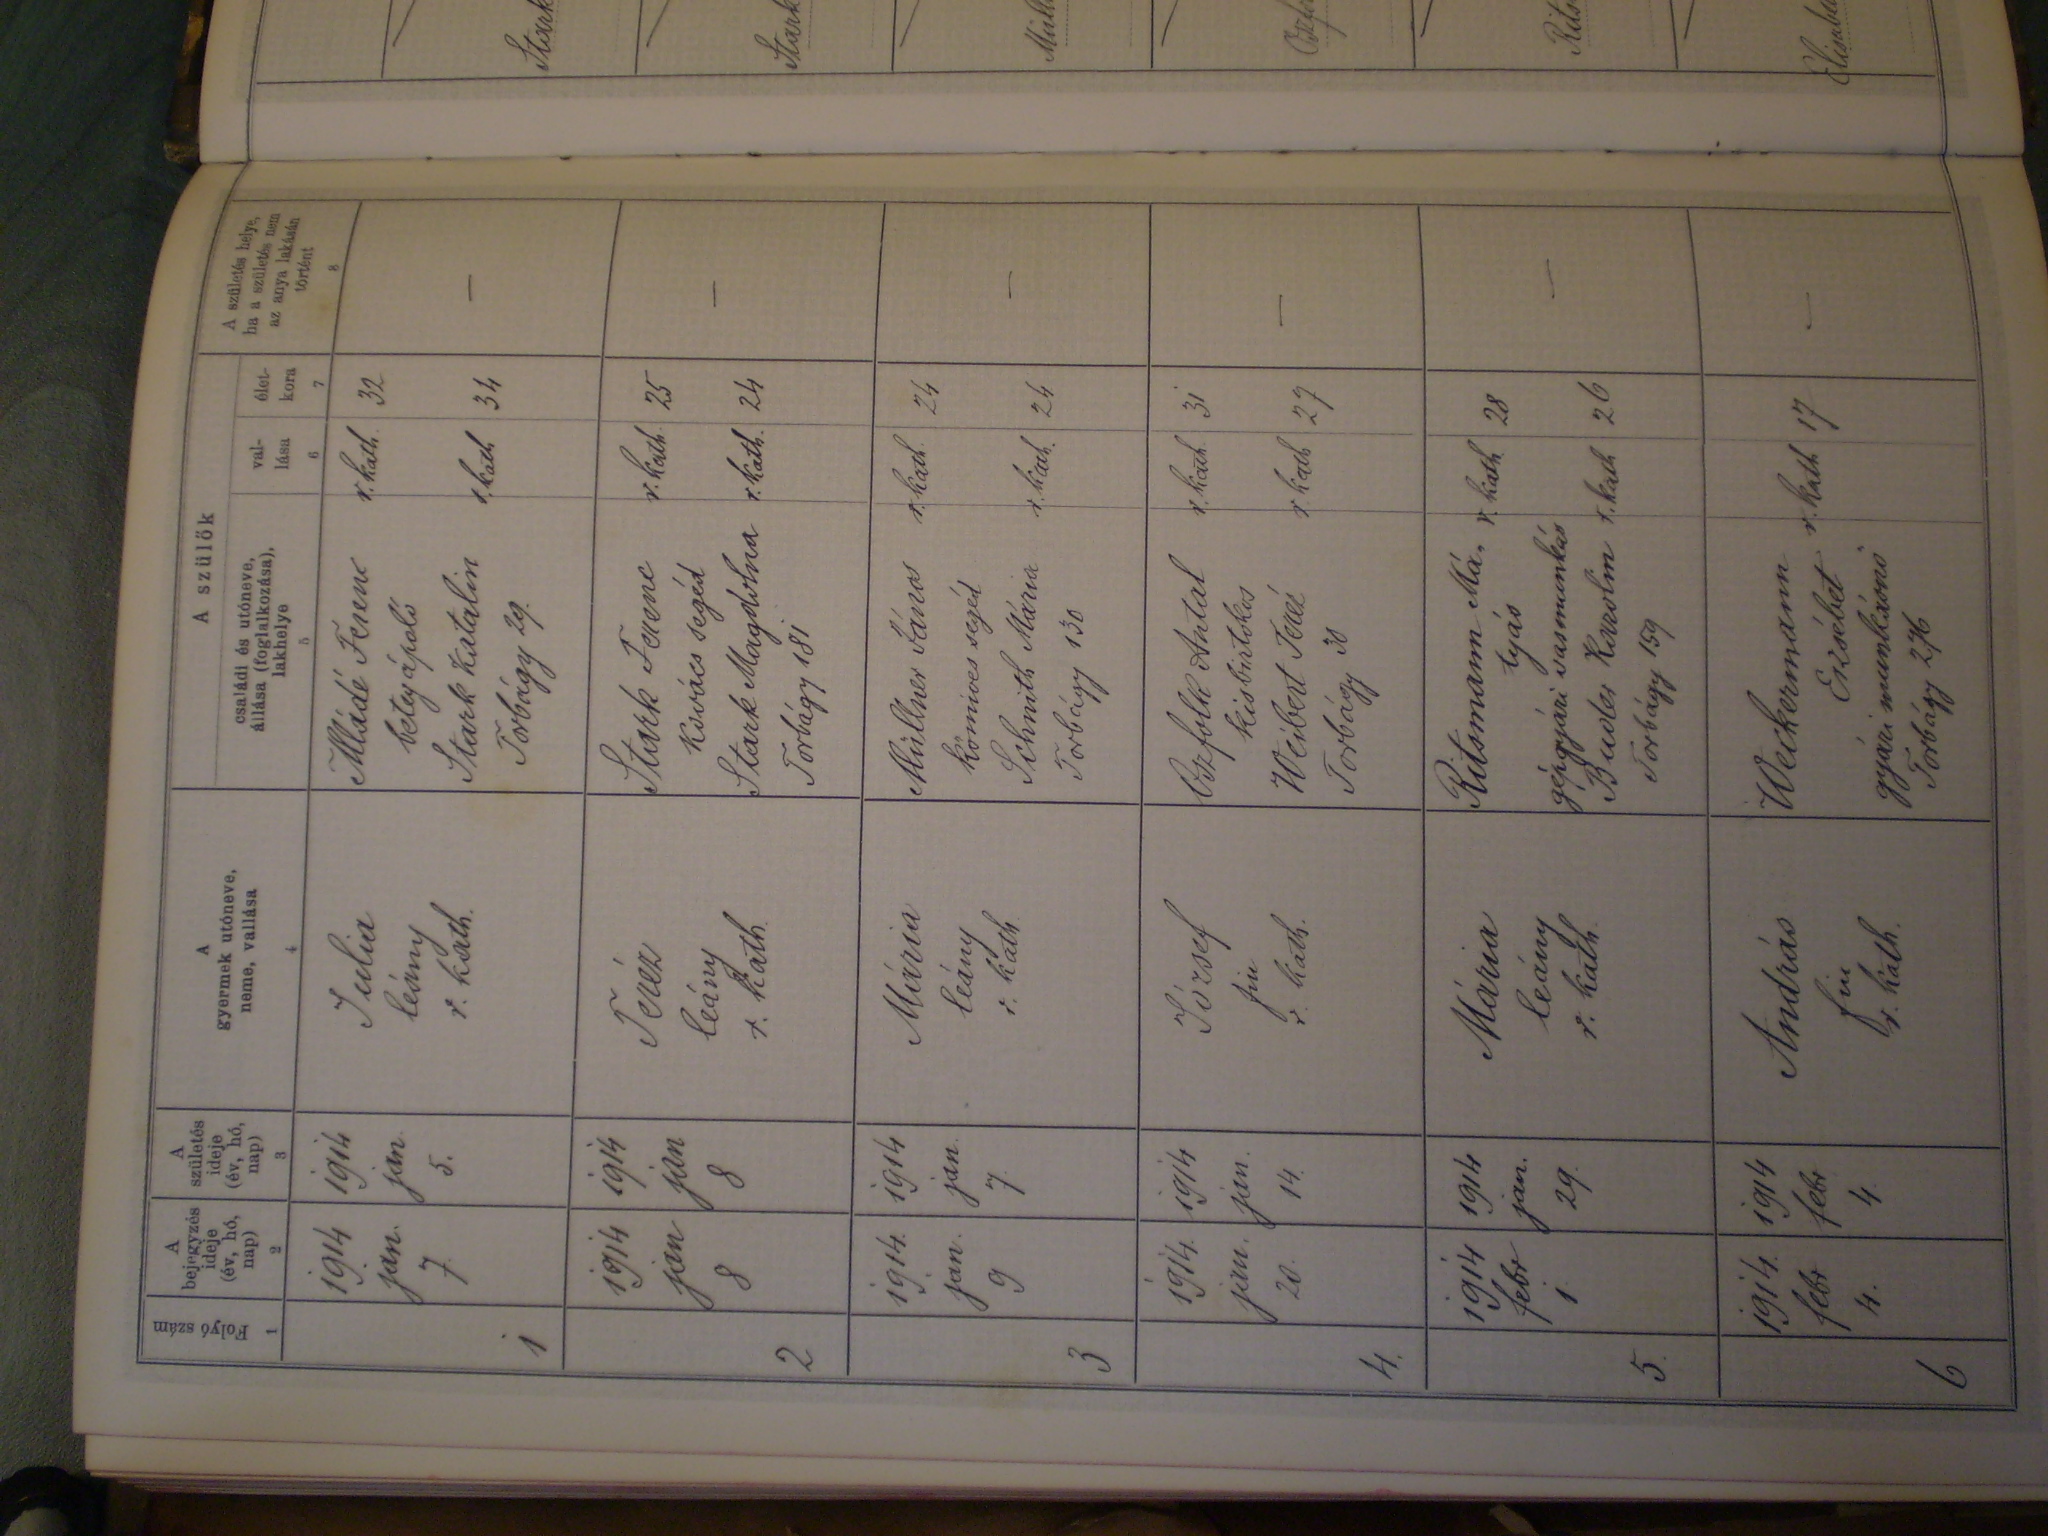 Folyó szám
A
bejegyzés
ideje
(év, hó,
nap)
A
születés
ideje
(év, hó,
nap)
A
gyermek utóneve,
neme, vallása
A szülők
családi és utóneve,
állása (foglalkozása),
lakhelye
val-
lása
élet-
kora
A születés helye,
ha a születés nem
az anya lakásán
történt
1
2
3
4
5
6
7
8
1
1914
jan.
7.
1914
jan.
5.
Julia
leány
r. kath.
Mádé Ferenc
betegápoló
Stark Katalin
Torbágy 29.
r. kath. 32
r. kath 34
—
2
1914
jan
8
1914
jan
8
Teréz
leány
r. kath.
Stark Ferenc
kovács segéd
Stark Magdolna
Torbágy 181
r. kath. 25
r. kath. 24
—
3
1914.
jan.
9
1914
jan.
7.
Mária
leány
r. kath
Müllner János
kőmives segéd
Schmith Mária
Torbágy 130
r. kath. 24
r. kath. 24
—
4.
1914.
jan.
20.
1914
jan.
14.
József
fiu
r. kath.
Oszfolk Antal
kisbirtokos
Weibert Teréz
Torbágy 30
r. kath 31
r. kath 27
—
5.
1914
febr
1.
1914
jan.
29.
Mária
leány
r. kath.
Ritsmann Má,
tyás
gépgyári vasmunkás
Bader Karolin
Torbágy 159
r. kath 28
r. kath 26
—
6
1914.
febr
4.
1914
febr
4.
András
fiu
r. kath.
Weckermann
Erzsébet
gyári munkásnő
Torbágy 276
r. kath 17
—
Stark
Stark